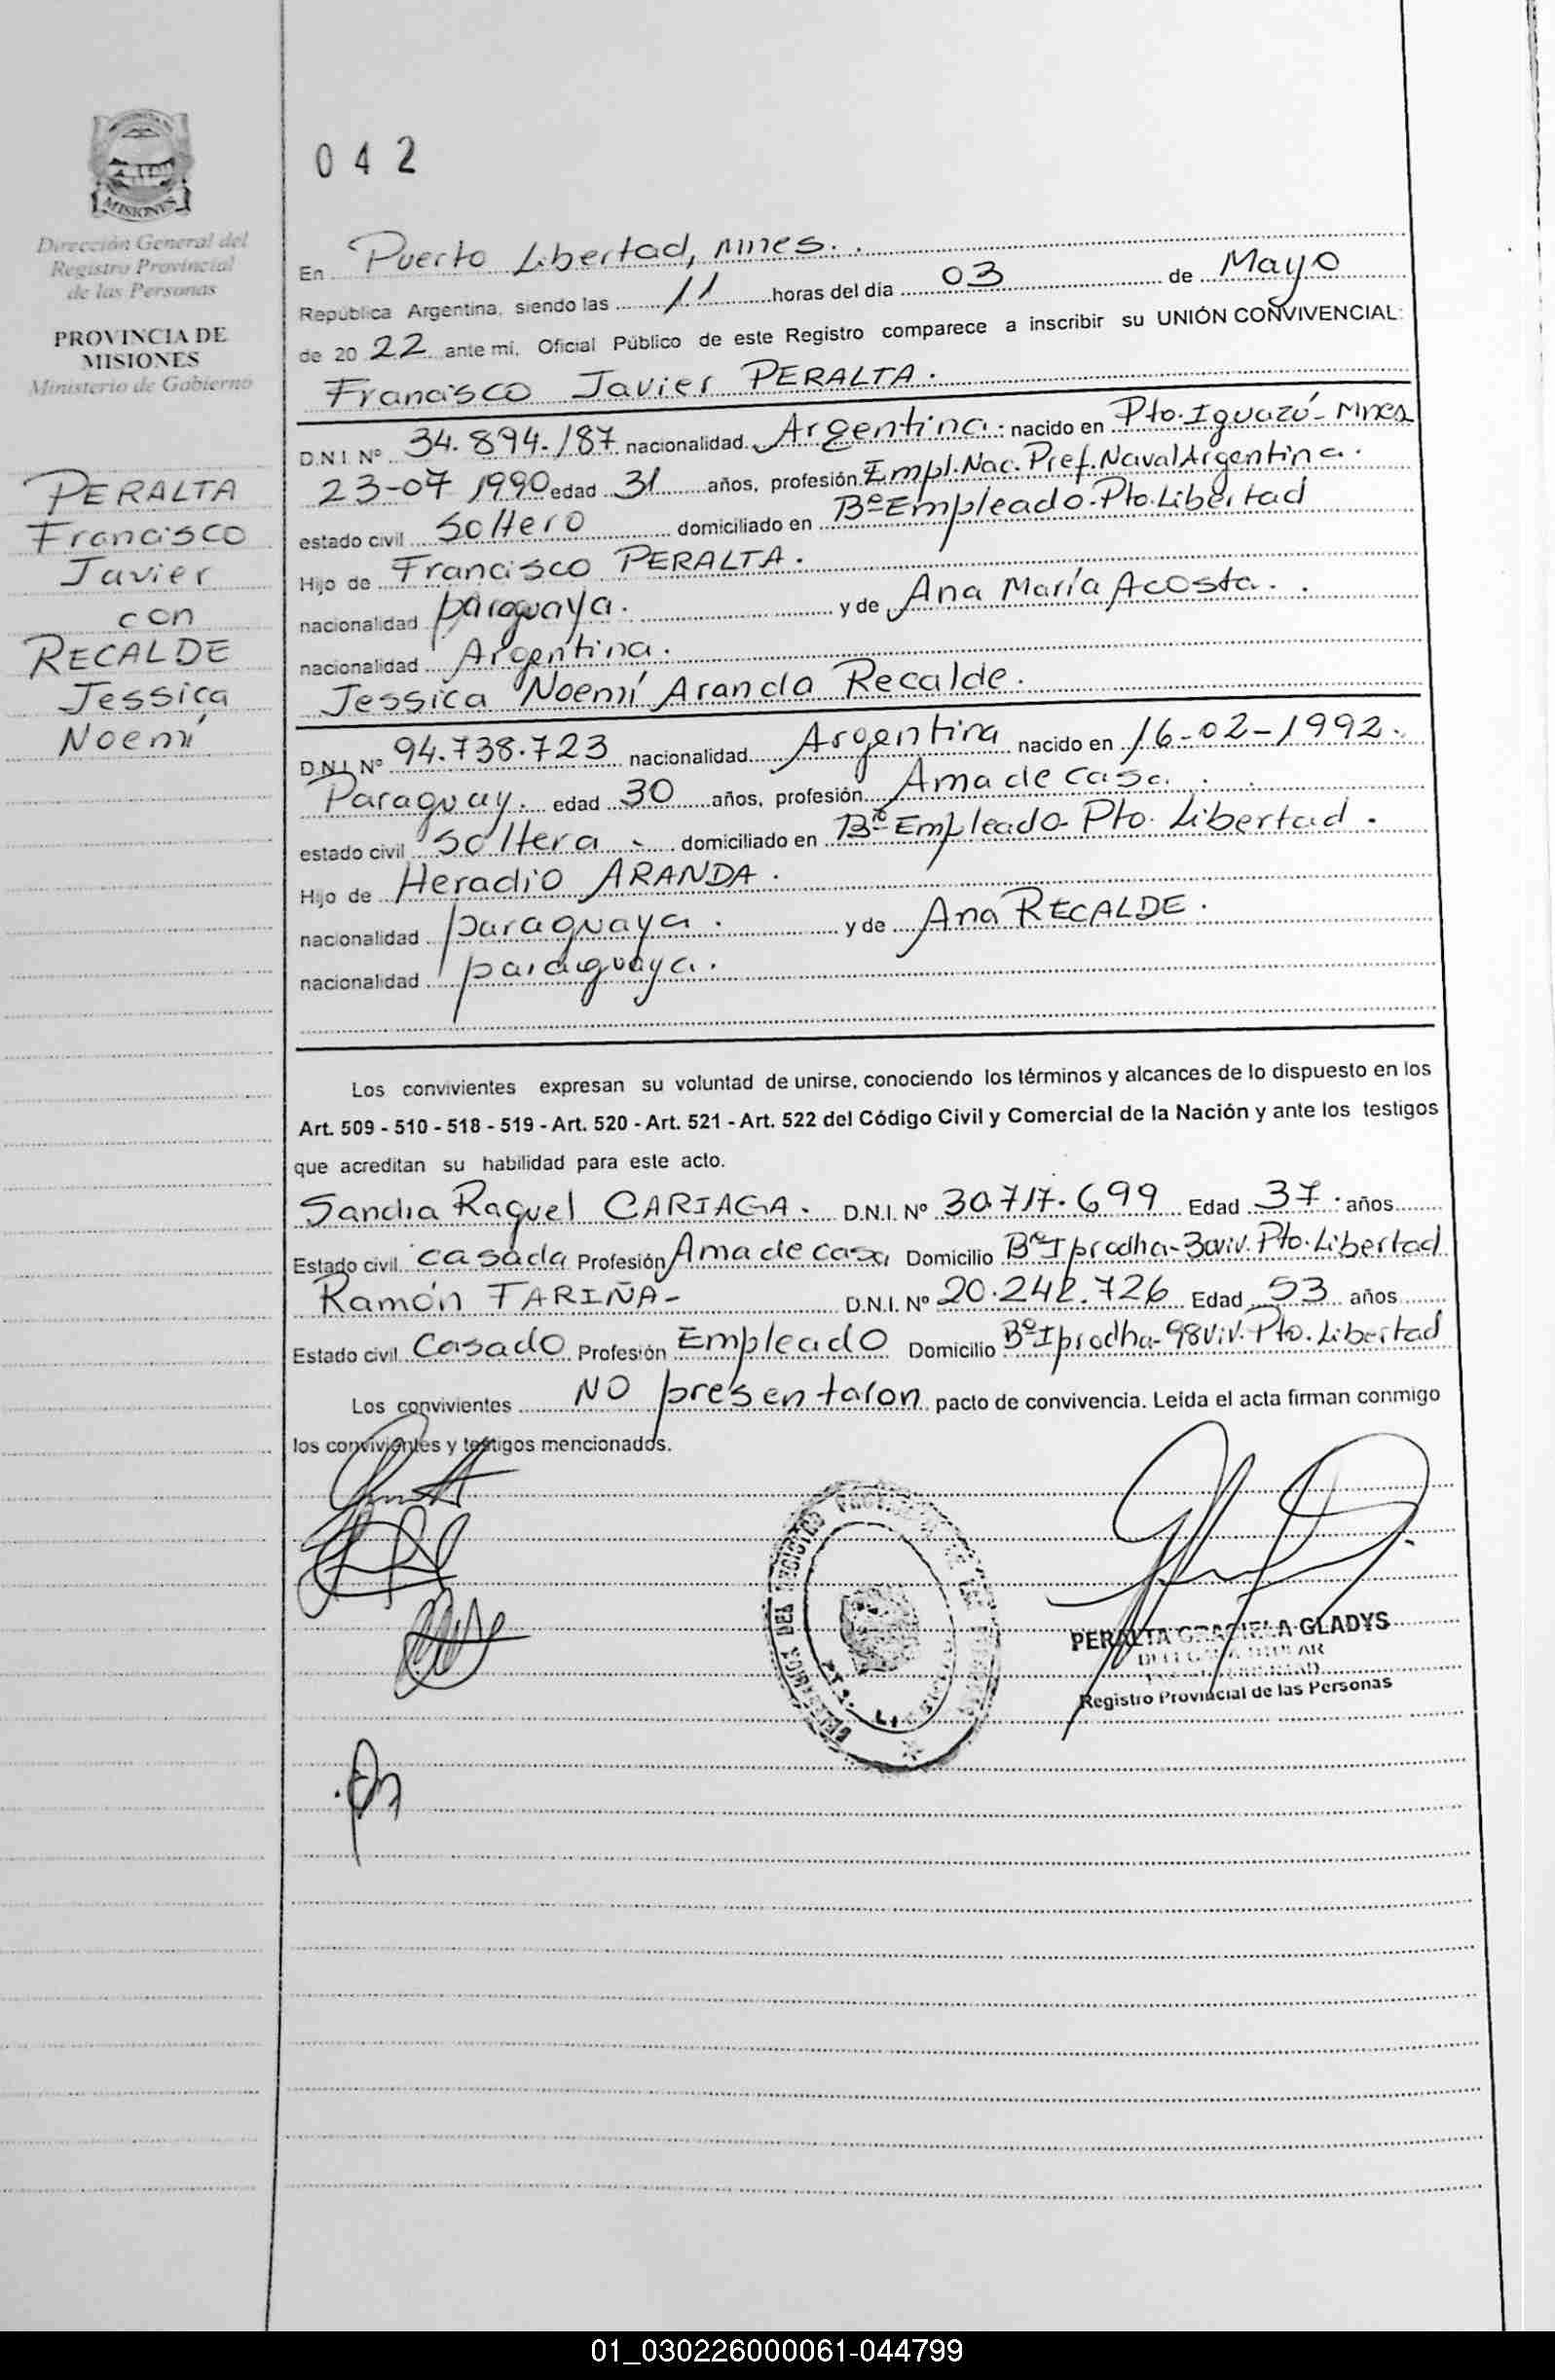 MISIONES
Dirección General del
Registro Provincial
de las Personas
PROVINCIA DE
MISIONES
Ministerio de Gobierno
PERALTA
Francisco
Javier
con
RECALDE
Jessica
Noemí
042
En Puerto Libertad, Mnes.
República Argentina, siendo las 11 horas del día 03 de Mayo
de 2022 ante mí, Oficial Público de este Registro comparece a inscribir su UNIÓN CONVIVENCIAL:
Francisco Javier PERALTA.
D.N.I. Nº 34.894.187 nacionalidad Argentina. nacido en Pto. Iguazú - Mnes
23-07 1990 edad 31 años, profesión Empl. Nac. Pref. Naval Argentina.
estado civil Soltero domiciliado en Bº Empleado. Pto. Libertad
Hijo de Francisco PERALTA.
nacionalidad paraguaya. y de Ana María Acosta.
nacionalidad Argentina.
Jessica Noemí Aranda Recalde.
D.N.I. Nº 94.738.723 nacionalidad Argentina nacido en 16-02-1992.
Paraguay. edad 30 años, profesión Ama de casa.
estado civil soltera domiciliado en Bº Empleado - Pto. Libertad.
Hijo de Heradio ARANDA.
nacionalidad paraguaya. y de Ana RECALDE.
nacionalidad paraguaya.
Los convivientes expresan su voluntad de unirse, conociendo los términos y alcances de lo dispuesto en los
Art. 509 - 510 - 518 - 519 - Art. 520 - Art. 521 - Art. 522 del Código Civil y Comercial de la Nación y ante los testigos
que acreditan su habilidad para este acto.
Sandra Raquel CARIAGA. D.N.I. Nº 30.717.699 Edad 37. años
Estado civil casada Profesión Ama de casa Domicilio Bº Iprodha - 30 viv. Pto. Libertad
Ramón FARIÑA - D.N.I. Nº 20.242.726 Edad 53 años
Estado civil Casado Profesión Empleado Domicilio Bº Iprodha - 98 viv. Pto. Libertad
Los convivientes NO presentaron pacto de convivencia. Leída el acta firman conmigo
los convivientes y testigos mencionados.
PERALTA GRACIELA GLADYS
Registro Provincial de las Personas
01_030226000061-044799